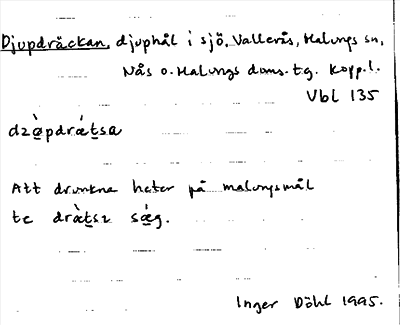 Djupdräckan, djuphål i sjö, Vallerås, Malungs sn,
Nås o. Malungs doms. tg. Kopp.l.
Vbl 135
dzæ̀pdrǽtsa
Att drunkna heter på malungsmål
te drætsz sæg.
Inger Döhl 1995.